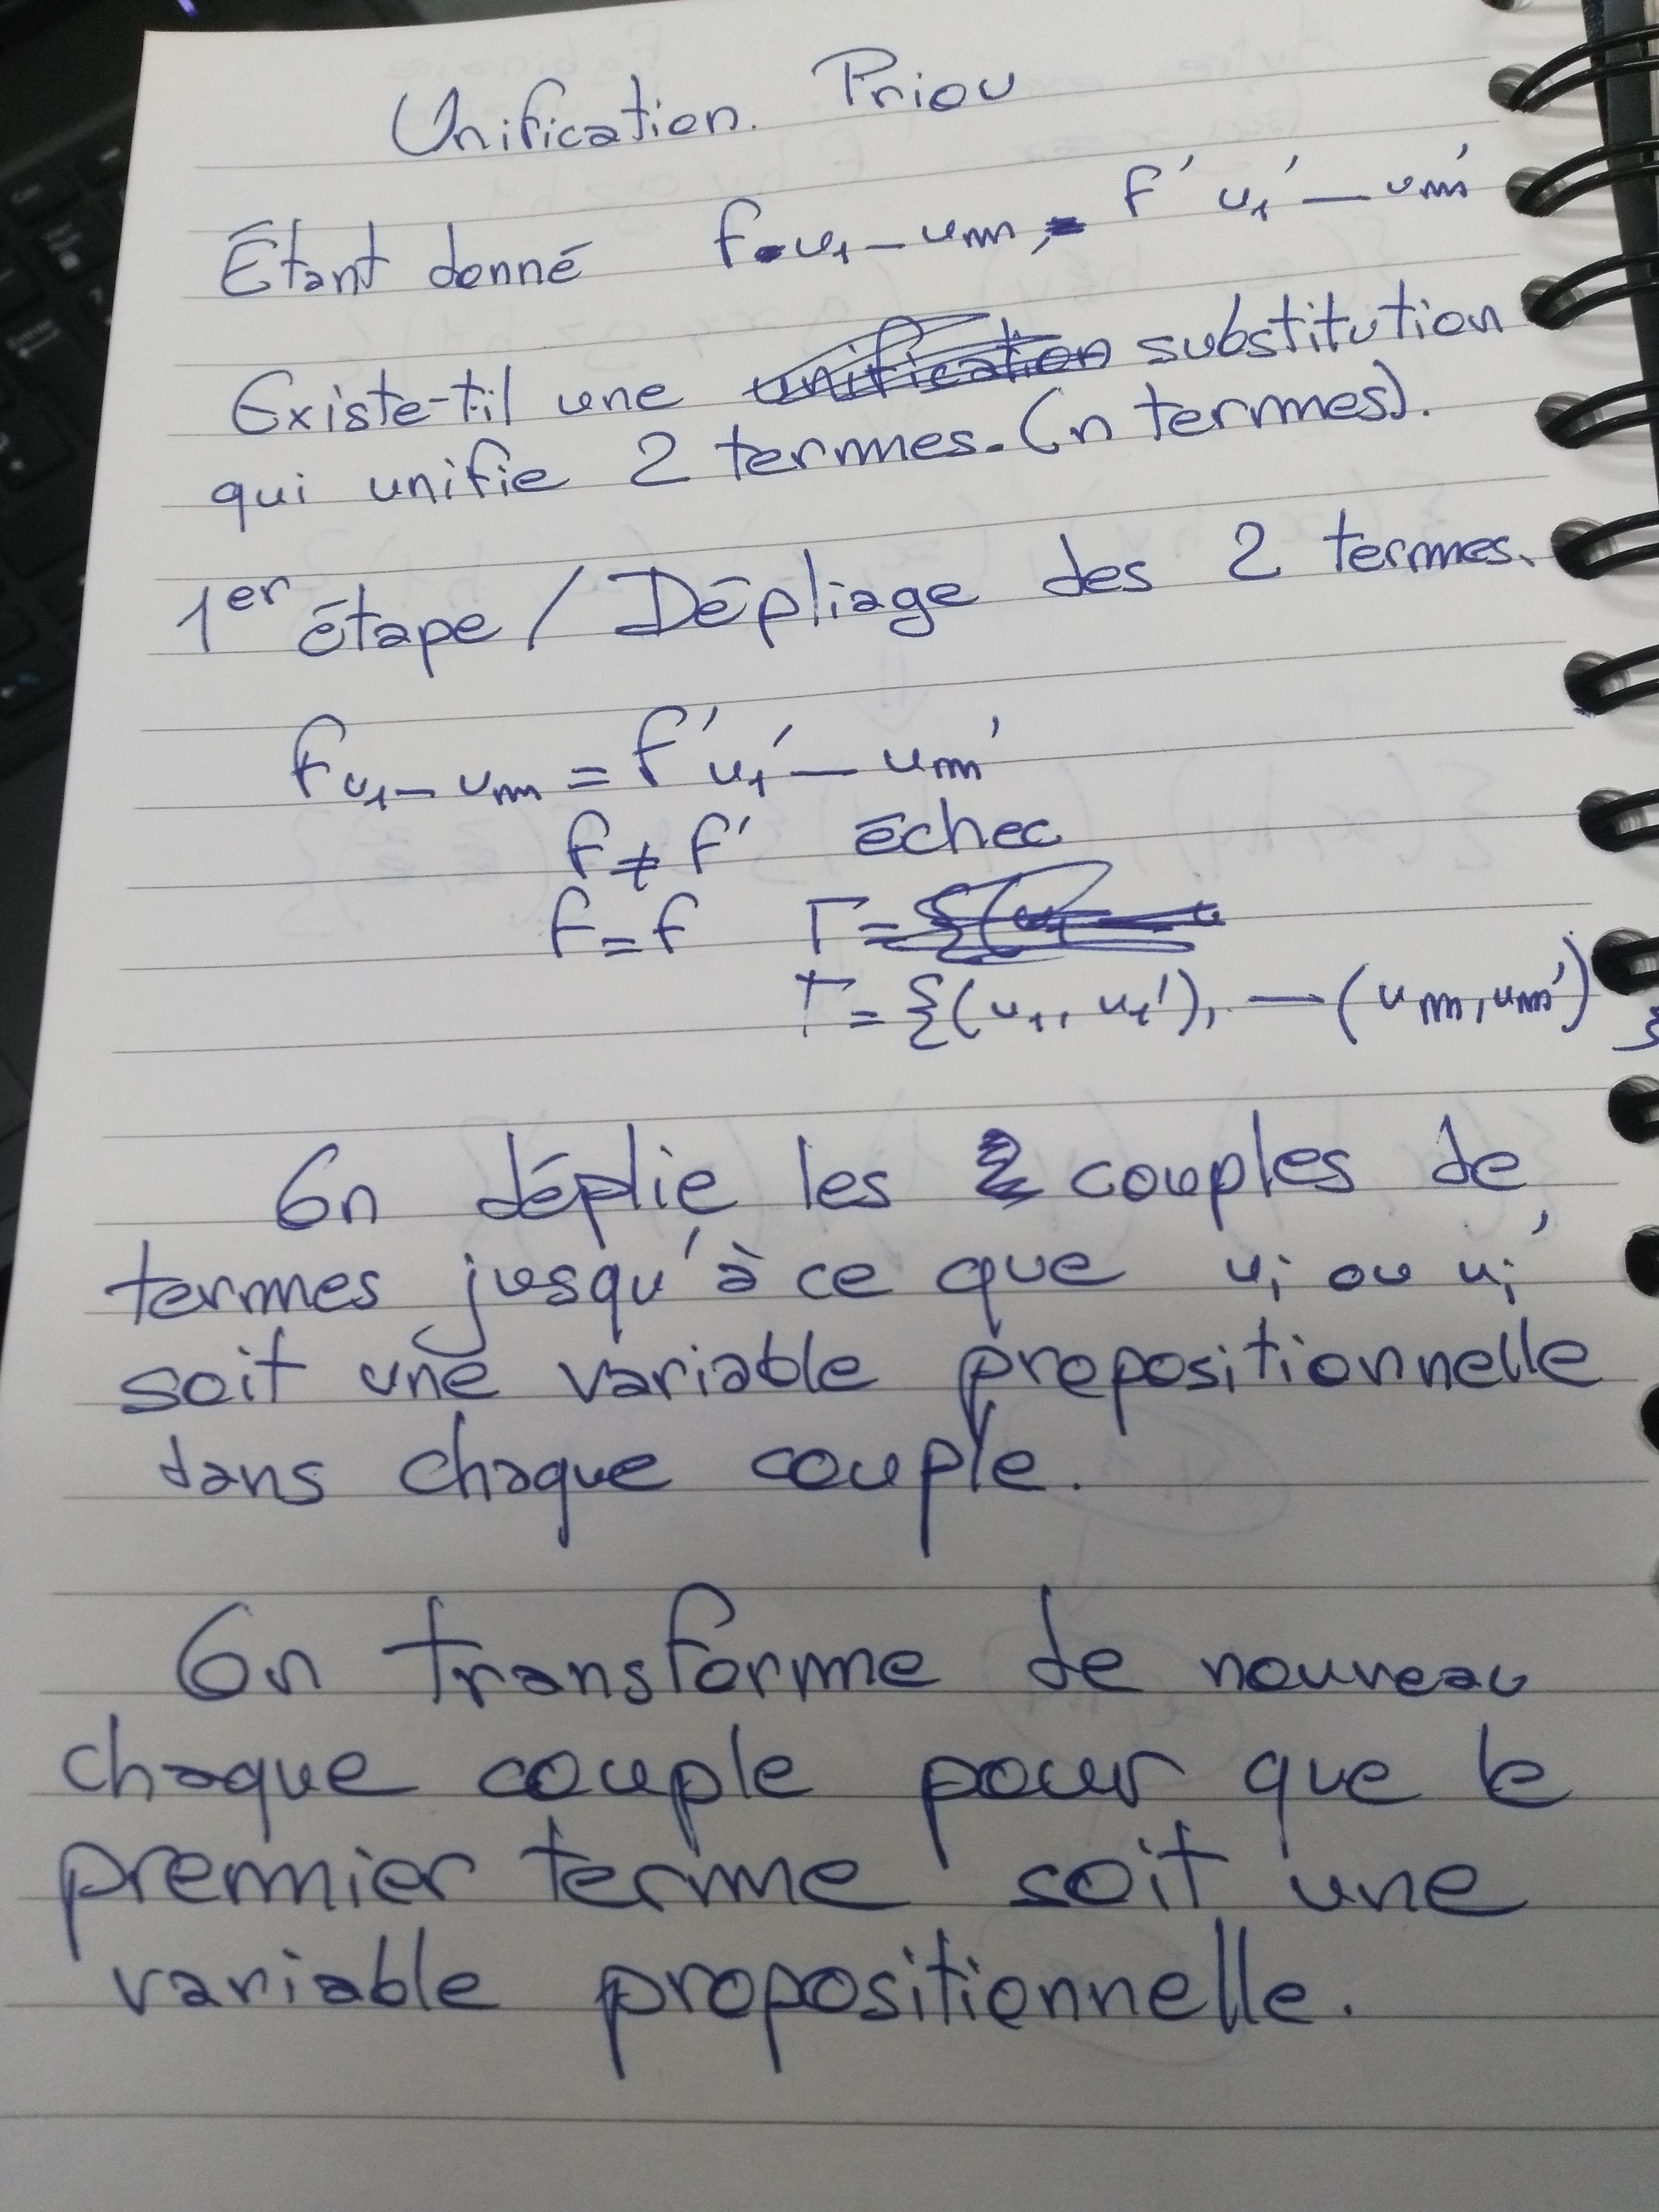 Unification. Priou
Étant donné f u₁ — uₘ, f' u₁' — uₘ'
Existe-til une substitution
qui unifie 2 termes. (n termes).
1er étape / Dépliage des 2 termes.
f u₁ — uₘ = f' u₁' — uₘ'
f ≠ f' échec
f = f Γ =
Γ = {(u₁, u₁'), — (uₘ, uₘ')}
On déplie les couples de
termes jusqu'à ce que uᵢ ou uᵢ'
soit une variable propositionnelle
dans chaque couple.
On transforme de nouveau
chaque couple pour que le
premier terme soit une
variable propositionnelle.